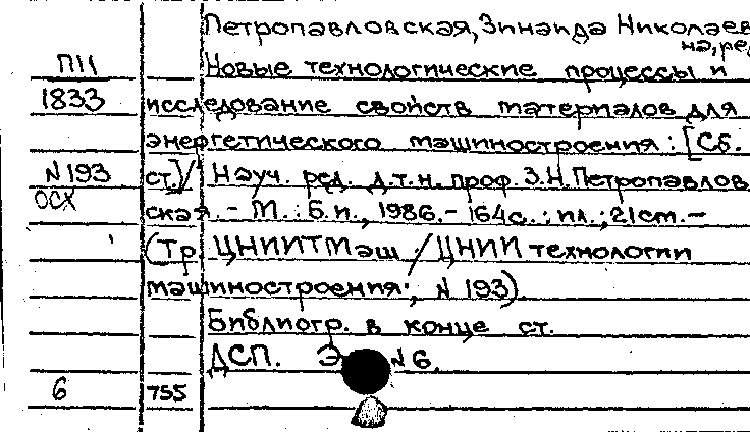 Петропавловская, Зинаида Николаев
на, ред
П11 Новые технологические процессы и
1833 исследование свойств материалов для
энергетического машиностроения: [Сб.
N193 ст.]/ Науч. ред. д.т.н. проф. З.Н. Петропавлов
ОСХ ская. - М.: Б.и., 1986. - 164с.: ил.; 21см. -
(Тр. ЦНИИТМаш / ЦНИИ технологии
машиностроения; N 193).
Библиогр. в конце ст.
ДСП. N6.
6 755